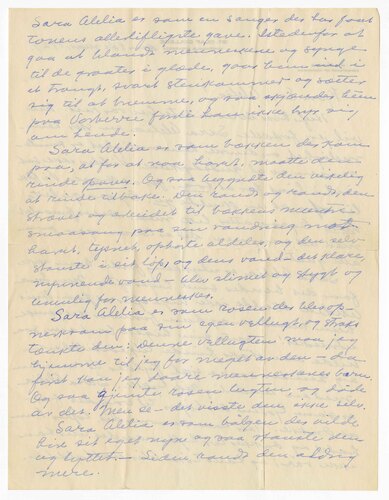 Sara Alelia er som en sanger der har faaet
tonens allerdeiligste gave. Istedenfor at
gaa ut blandt menneskene og synge
til de graater i glæde, gaar ham ind i
et trangt, svart stenkammer og sætter
sig til at brumme, og saa skjønder
paa Vorherre fordi han ikke bryr sig
om hende.
Sara Alelia er som bækken der kom
paa, at for at naa havet, maatte den
rinde opover. Og saa begyndte den virkelig
at rinde tilbake. Den vandt og vandt, den
strævet og arbeidet til bækkens
smaasang paa sin vandring mot
havet, tystnet, ophørte aldeles, og den selv
stanste i sit løp, og dens vand - det klare
rinnende vand - blev slimet og stygt og
ubrukelig for mennesker.
Sara Alelia er som rosen der blev op-
merksom paa sin egen vellugt, og straks
tænkte den: Denne vellugten maa jeg
gjemme til jeg faar meget av den - da
først kan jeg daare menneskenes barn.
Og saa gjemte rosen lugten, og døde
av det. Men se - det visste den ikke selv.
Sara Alelia er som bølgen der vilde
hire sit eget mæle og saa stanste den
og lyttet - Siden sandt den aldrig
mere.